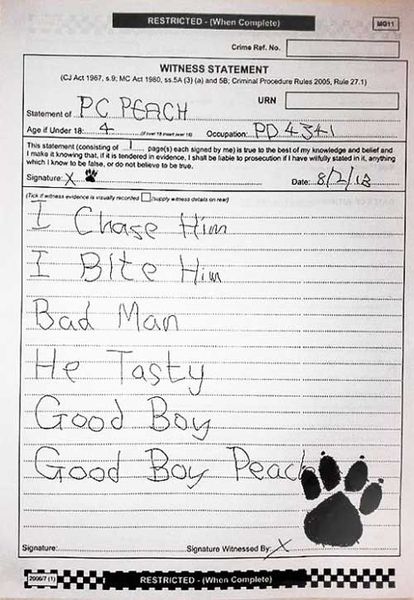 RESTRICTED - (When Complete)
MG11
Crime Ref. No.
WITNESS STATEMENT
(CJ Act 1967, s.9; MC Act 1980, ss.5A (3) (a) and 5B; Criminal Procedure Rules 2005, Rule 27.1)
Statement of PC PEACH URN
Age if Under 18: 4 (if over 18 insert over 18) Occupation: PD 4341
This statement (consisting of 1 page(s) each signed by me) is true to the best of my knowledge and belief and
I make it knowing that, if it is tendered in evidence, I shall be liable to prosecution if I have wilfully stated in it, anything
which I know to be false, or do not believe to be true.
Signature: X Date: 8/2/18
(Tick if witness evidence is visually recorded (supply witness details on rear)
I Chase Him
I Bite Him
Bad Man
He Tasty
Good Boy
Good Boy Peach
Signature: Signature Witnessed By: X
2006/7 (1) RESTRICTED - (When Complete)